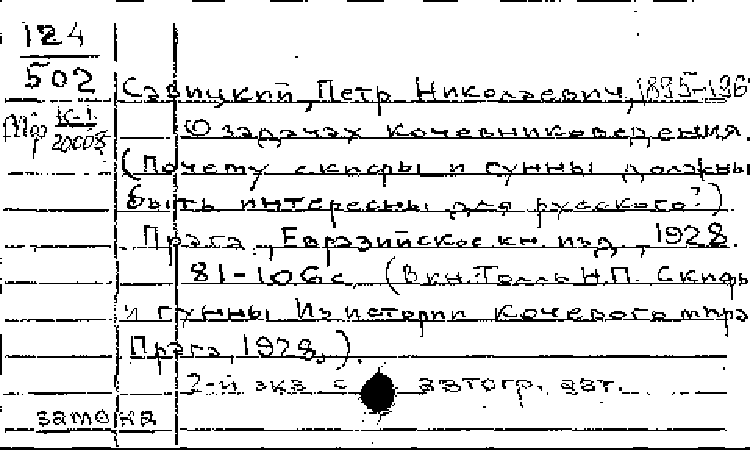 124
502
Савицкий, Петр Николаевич, 1895-196
К-1
О задачах кочевниковедения.
(Почему скифы и гунны должны
быть интересны для русского?)
Прага, Евразийское кн. изд., 1928.
81-106 с. (В кн. Толль Н.П. Скифы
и гунны Из истории кочевого мира
Прага, 1928.).
2-й экз с автогр. авт.